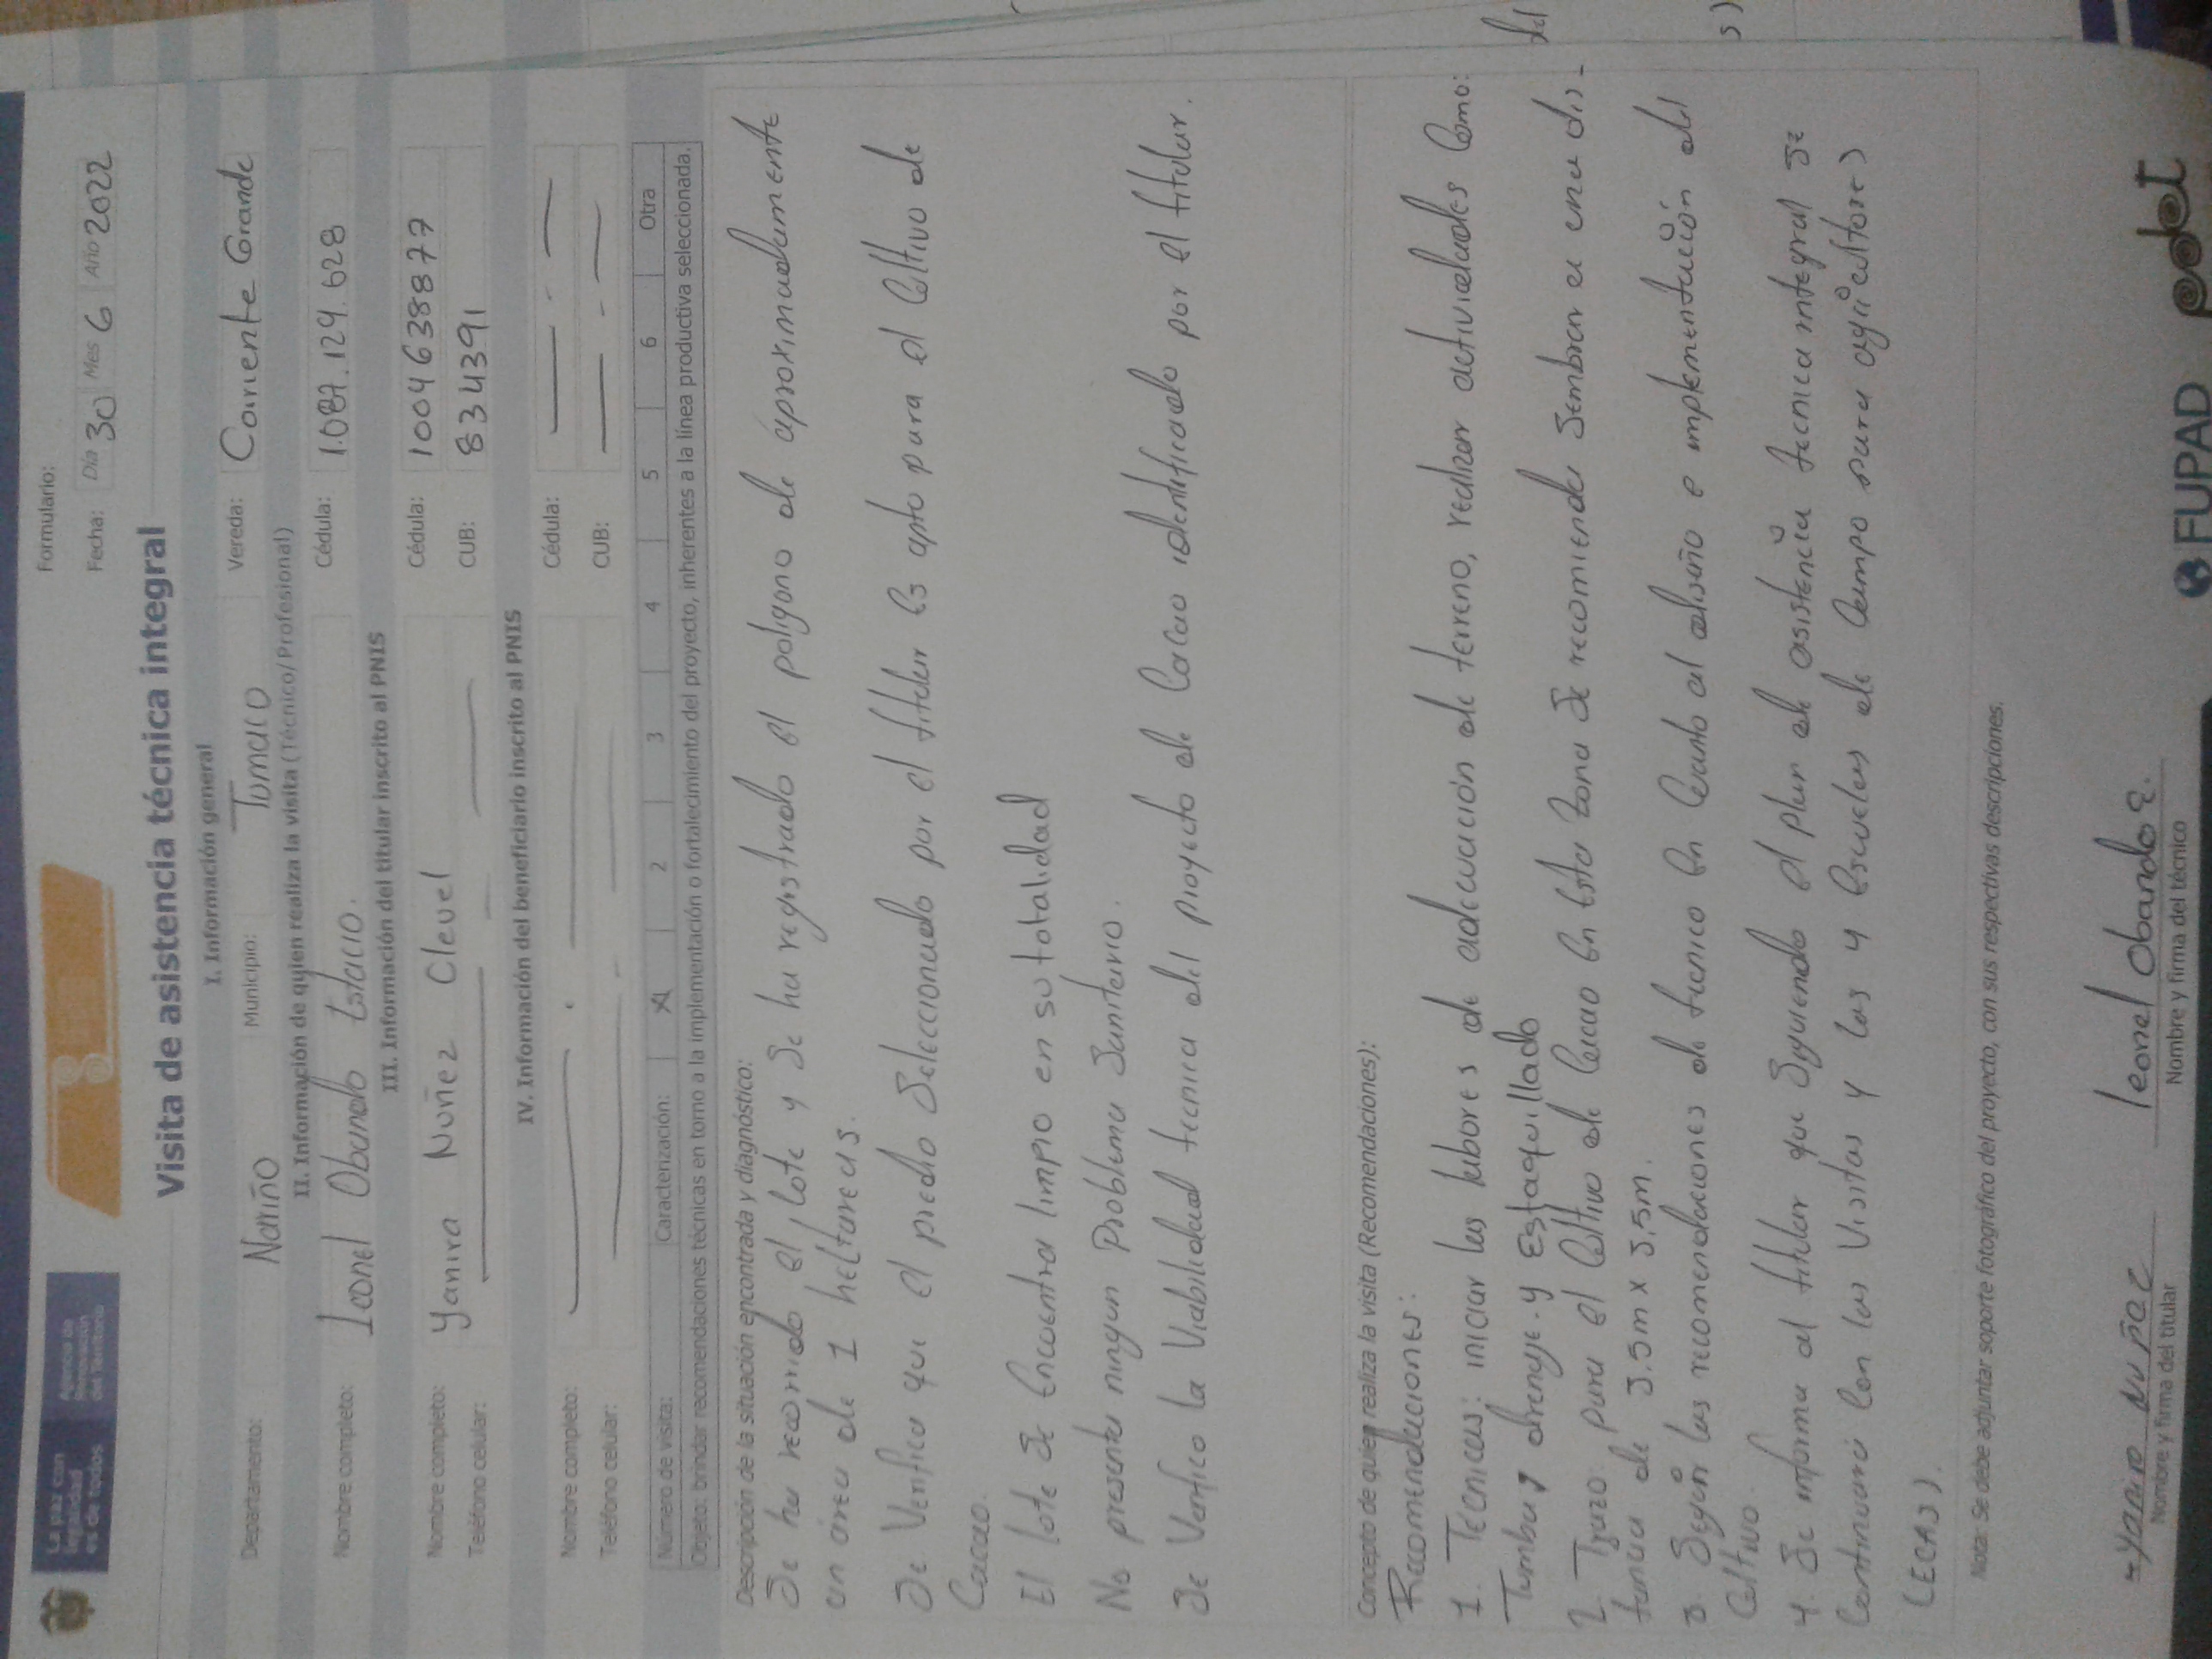 La paz con
legalidad
es de todos
Agencia de
Renovación
del Territorio
Formulario:
Fecha: Día 30 Mes 6 Año 2022
Visita de asistencia técnica integral
I. Información general
Departamento: Nariño Municipio: Tumaco Vereda: Coriente Grande
II. Información de quien realiza la visita (Técnico/ Profesional)
Nombre completo: Leonel Obando Estacio. Cédula: 1.087.124.628
III. Información del titular inscrito al PNIS
Nombre completo: Yanira Nuñez Clevel Cédula: 1004638877
Teléfono celular: CUB: 834391
IV. Información del beneficiario inscrito al PNIS
Nombre completo: Cédula:
Teléfono celular: CUB:
Número de visita: Caracterización: X 2 3 4 5 6 Otra
Objeto: brindar recomendaciones técnicas en torno a la implementación o fortalecimiento del proyecto, inherentes a la línea productiva seleccionada.
Descripción de la situación encontrada y diagnóstico:
Se ha recorrido el lote y se ha registrado el poligono de aproximadamente
un área de 1 hectareas.
Se Verifico que el predio Seleccionado por el titular es apto para el Cultivo de
Cacao.
El lote se Encuentra limpio en su totalidad
No presenta ningun Problema Sanitario.
Se Verifico la Viabilidad tecnica del proyecto de Cacao identificado por el titular.
Concepto de quien realiza la visita (Recomendaciones):
Recomendaciones:
1. Tecnicas: iniciar las labores de adecuación de terreno, realizar actividades Como:
Tumba y drenaje. y Estaquillado
2. Trazo: para el Cultivo de Cacao en esta zona se recomienda Sembrar a una dis-
tancia de 3.5m x 3.5m.
3. Según las recomendaciones de tecnico en Cuanto al diseño e implementación del
Cultivo.
4. Se informa al titular que Siguiendo el plan de asistencia tecnica integral se
Continuará Con las Visitas y las 4 Escuelas de Campo para agricultores
(ECAS).
Nota: Se debe adjuntar soporte fotográfico del proyecto, con sus respectivas descripciones.
Yanira Nuñez
Nombre y firma del titular
leonel Obando E.
Nombre y firma del técnico
FUPAD
pdet
del
s)